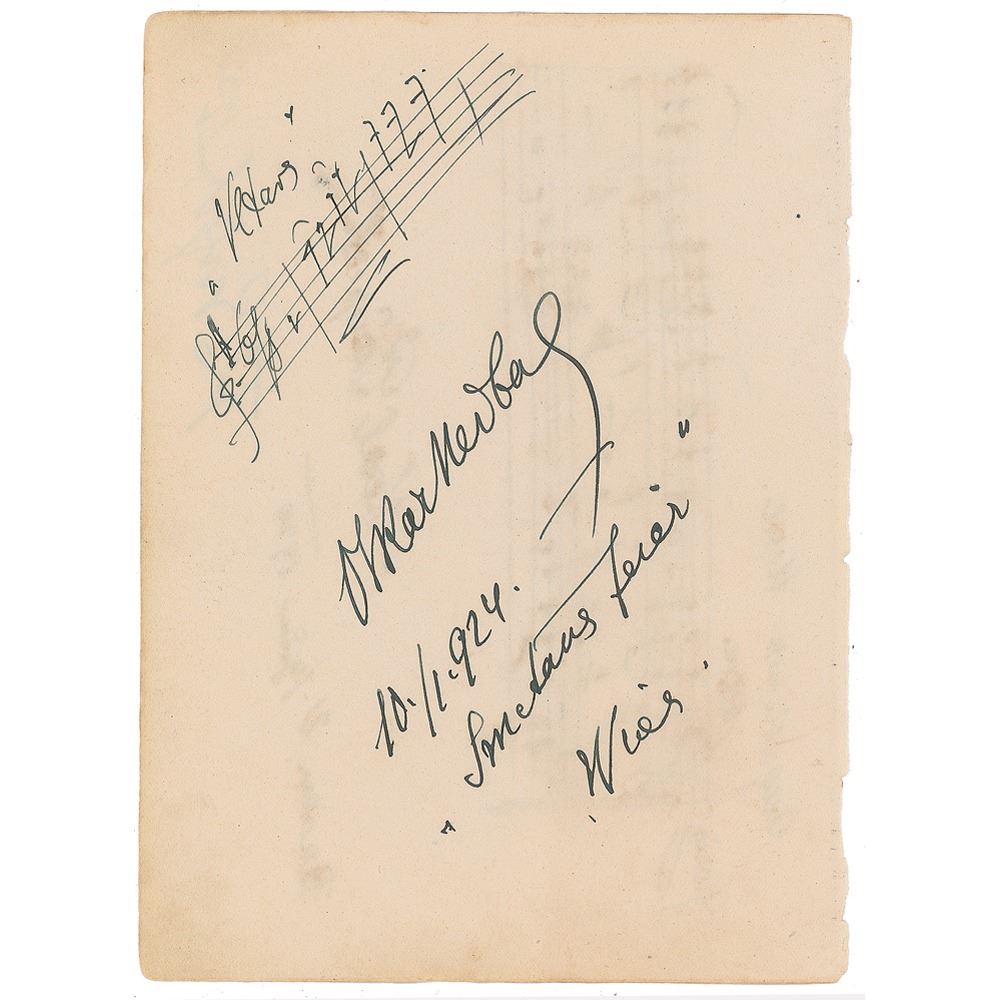 "Vltava"
Oskar Nedbal
10./1.924.
"Smetana Feier"
Wien.